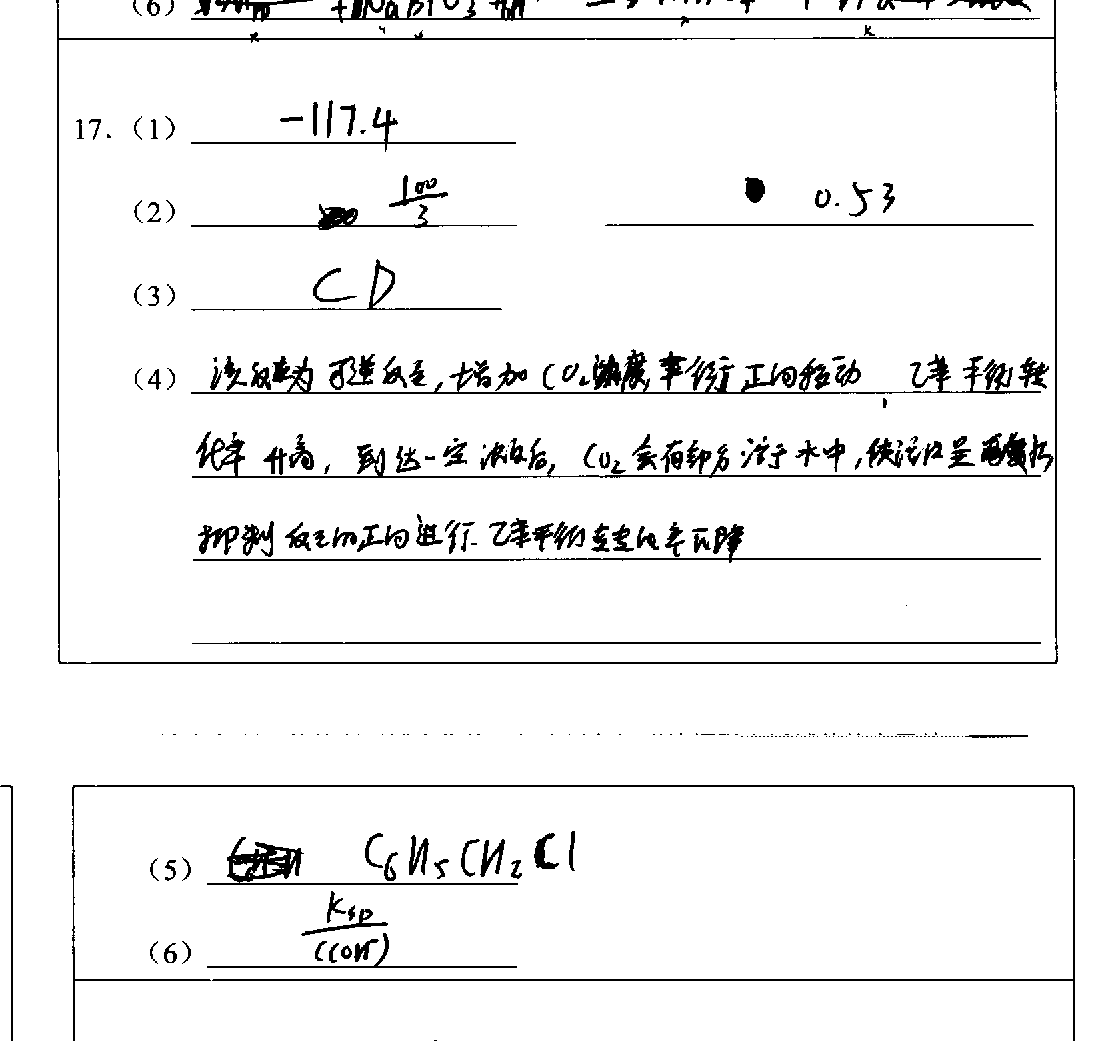 (6) + NaBrO3 +
17. (1) -117.4
(2) 100/3 0.53
(3) CD
(4) 该反应为可逆反应,增加CO2浓度,平衡正向移动,乙苯平衡转
化率升高,到达一定浓度后,CO2会有部分溶于水中,使
抑制反应的正向进行.乙苯平衡转化率下降
(5) C6H5CH2Cl
(6) Ksp/c(OH-)